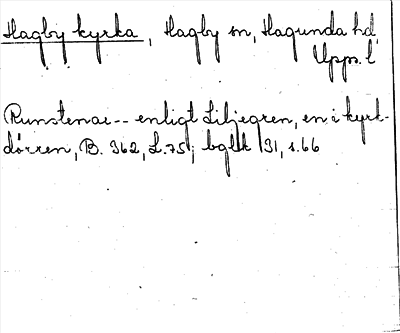 Hagby kyrka, Hagby sn, Hagunda hd
Upps. l
Runstenar -- enligt Liljegren, en i kyrk-
dörren, B. 362, L. 75; bglk 131, s. 66